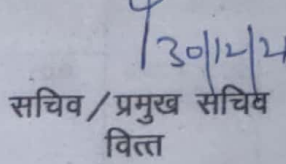 30/12/2
सचिव / प्रमुख सचिव
वित्त